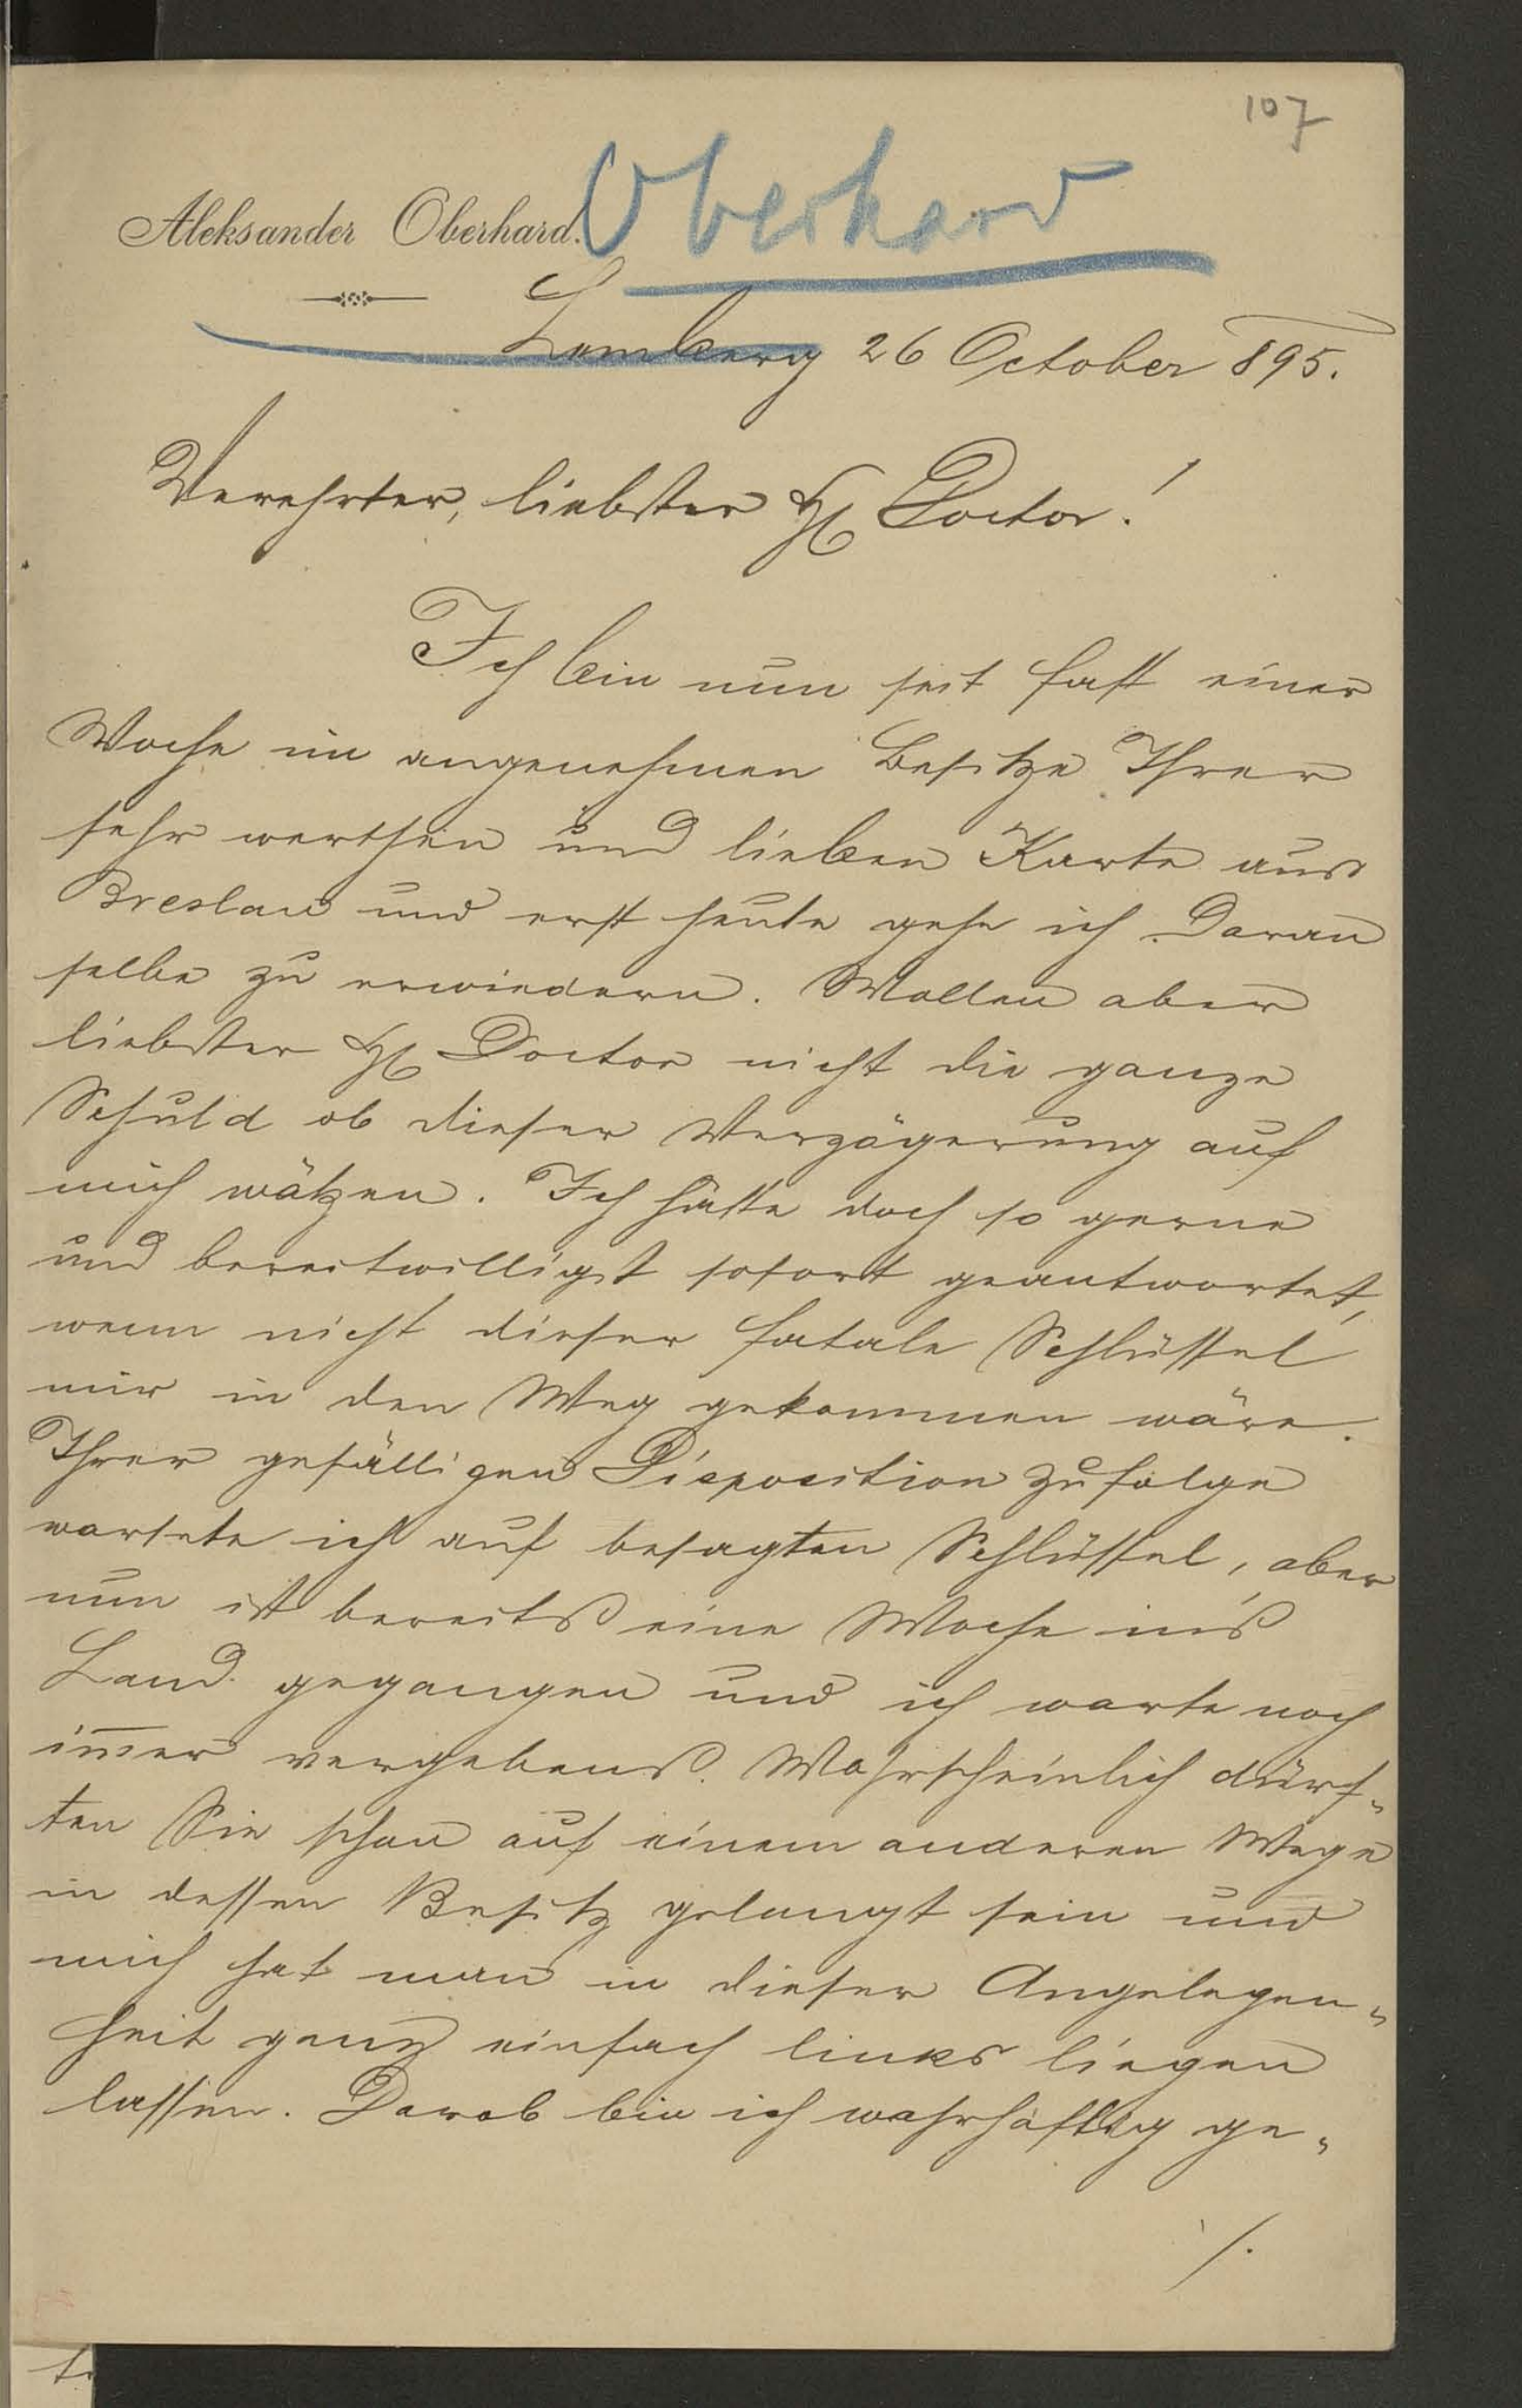 107
Aleksander Oberhard.
Oberhard
Lemberg 26 October 895.
Verehrter, liebster H Doctor!
Ich bin nun seit fast einer
Woche im angenehmen Besitze Ihrer
sehr werthen und lieben Karte aus
Breslau und erst heute gehe ich daran
selbe zu erwiedern. Wollen aber
liebster H Doctor nicht die ganze
Schuld ob dieser Verzögerung auf
mich wälzen. Ich hätte doch so gerne
und bereitwilligst sofort geantwortet,
wenn nicht dieser fatale Schlüssel
mir in den Weg gekommen wäre.
Ihrer gefälligen Disposition zufolge
wartete ich auf besagten Schlüssel, aber
nun ist bereits eine Woche in's
Land gegangen und ich warte noch
im̅er vergebens. Wahrscheinlich dürf-
ten Sie schon auf einem anderen Wege
in dessen Besitz gelangt sein und
mich hat man in dieser Angelegen-
heit ganz einfach links liegen
lassen. Darob bin ich wahrhaftig ge-
/.